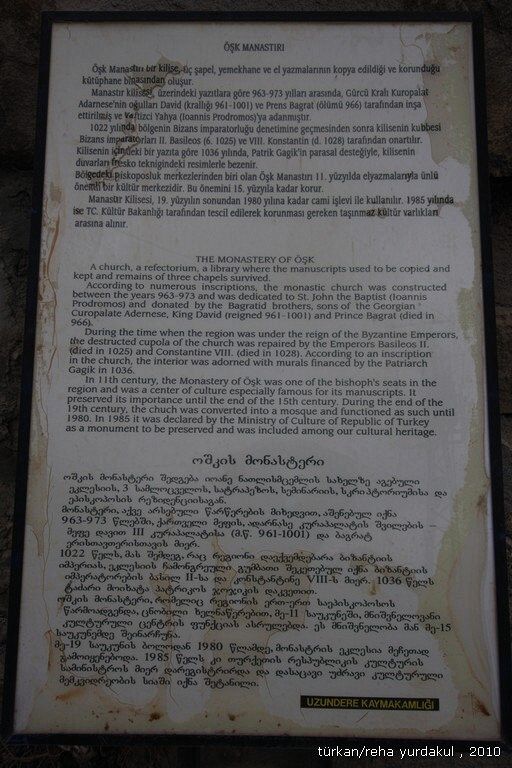 ÖŞK MANASTIRI
Öşk Manastırı bir kilise, üç şapel, yemekhane ve el yazmalarının kopya edildiği ve korunduğu
kütüphane binasından oluşur.
Manastır kilisesi, üzerindeki yazıtlara göre 963-973 yılları arasında, Gürcü Kralı Kuropalat
Adarnese'nin oğulları David (krallığı 961-1001) ve Prens Bagrat (ölümü 966) tarafından inşa
ettirilmiş ve Vaftizci Yahya (Ioannis Prodromos)'ya adanmıştır.
1022 yılında bölgenin Bizans imparatorluğu denetimine geçmesinden sonra kilisenin kubbesi
Bizans imparatorları II. Basileos (ö. 1025) ve VIII. Konstantin (d. 1028) tarafından onartılır.
Kilisenin içindeki bir yazıta göre 1036 yılında, Patrik Gagik'in parasal desteğiyle, kilisenin
duvarları fresko tekniğindeki resimlerle bezenir.
Bölgedeki piskoposluk merkezlerinden biri olan Öşk Manastırı 11. yüzyılda elyazmalarıyla ünlü
önemli bir kültür merkezidir. Bu önemini 15. yüzyıla kadar korur.
Manastır Kilisesi, 19. yüzyılın sonundan 1980 yılına kadar cami işlevi ile kullanılır. 1985 yılında
ise TC. Kültür Bakanlığı tarafından tescil edilerek korunması gereken taşınmaz kültür varlıkları
arasına alınır.
THE MONASTERY OF ÖŞK
A church, a refectorium, a library where the manuscripts used to be copied and
kept and remains of three chapels survived.
According to numerous inscriptions, the monastic church was constructed
between the years 963-973 and was dedicated to St. John the Baptist (Ioannis
Prodromos) and donated by the Bagratid brothers, sons of the Georgian
Curopalate Adernese, King David (reigned 961-1001) and Prince Bagrat (died in
966).
During the time when the region was under the reign of the Byzantine Emperors,
the destructed cupola of the church was repaired by the Emperors Basileos II.
(died in 1025) and Constantine VIII. (died in 1028). According to an inscription
in the church, the interior was adorned with murals financed by the Patriarch
Gagik in 1036.
In 11th century, the Monastery of Öşk was one of the bishoph's seats in the
region and was a center of culture especially famous for its manuscripts. It
preserved its importance until the end of the 15th century. During the end of the
19th century, the chuch was converted into a mosque and functioned as such until
1980. In 1985 it was declared by the Ministry of Culture of Republic of Turkey
as a monument to be preserved and was included among our cultural heritage.
ოშკის მონასტერი
ოშკის მონასტერი შედგება იოანე ნათლისმცემლის სახელზე აგებული
ეკლესიის, 3 სამლოცველოს, სატრაპეზოს, სემინარიის, სკრიპტორიუმისა და
ეპისკოპოსის რეზიდენციისაგან.
მონასტერი, აქვე არსებული წარწერების მიხედვით, აშენებულ იქნა
963-973 წლებში, ქართველი მეფის, ადარნასე კურაპალატის შვილების –
მეფე დავით III კურაპალატისა (მ.წ. 961-1001) და ბაგრატ
ერისთავთერისთავის მიერ.
1022 წელს, მას შემდეგ, რაც რეგიონი დაექვემდებარა ბიზანტიის
იმპერიას, ეკლესიის ჩამონგრეული გუმბათი შეკეთებულ იქნა ბიზანტიის
იმპერატორების ბასილ II-სა და კონსტანტინე VIII-ს მიერ. 1036 წელს
ტაძარი მოიხატა პატრიკის ჯოჯიკის დაკვეთით.
ოშკის მონასტერი, რომელიც რეგიონის ერთ-ერთ საეპისკოპოსოს
წარმოადგენდა, ცნობილი ხელნაწერებით, მე-11 საუკუნეში, მნიშვნელოვანი
კულტურული ცენტრის ფუნქციას ასრულებდა. ეს მნიშვნელობა მან მე-15
საუკუნემდე შეინარჩუნა.
მე-19 საუკუნის ბოლოდან 1980 წლამდე, მონასტრის ეკლესია მეჩეთად
გამოიყენებოდა. 1985 წელს კი თურქეთის რესპუბლიკის კულტურის
სამინისტროს მიერ დარეგისტრირდა და დასაცავი უძრავი კულტურული
მემკვიდრეობის სიაში იქნა შეტანილი.
UZUNDERE KAYMAKAMLIĞI
türkan/reha yurdakul , 2010